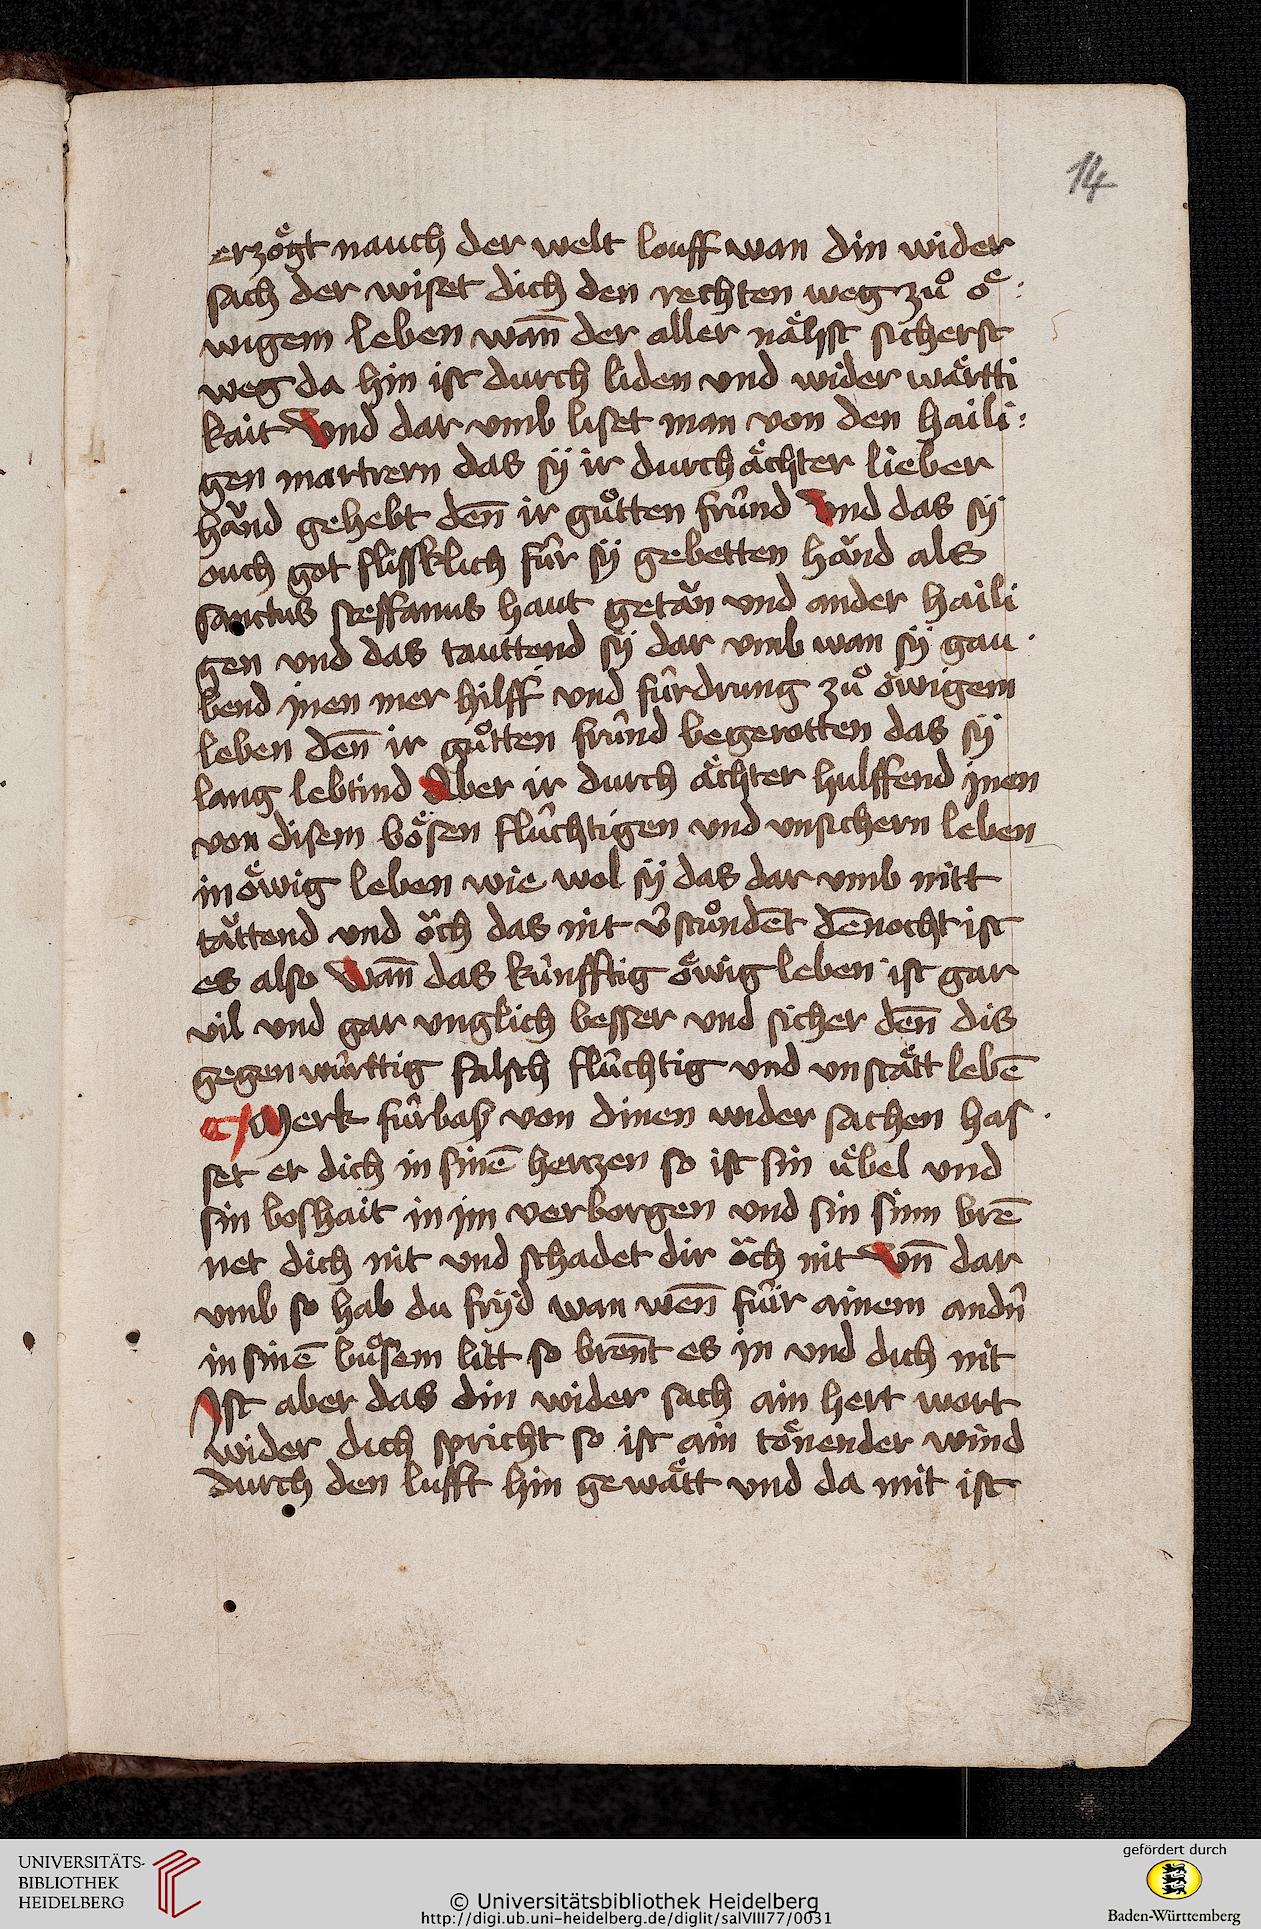 14
erzoͤgt nauch der welt louff wan din wider
sach der wiset dich den rechten weg zuͦ oͤ:
wigem leben wan̄ der aller naͤhst sicherst
weg da hin ist durch liden und wider waͤrtti
kait Vnd dar vmb liset man von den haili:
gen martrern das sÿ ir durch aͤchter lieber
haͮnd gehebt den̄ ir guͦtten frúnd Vnd das sÿ
ouch got flissklich fúr sÿ gebetten haͮnd als
sanctus steffanus haut getaͮn vnd ander haili
gen vnd das tauttend sÿ dar vmb wan sÿ gau
bend jnen mer hilff vnd fúrdrung zuͦ oͤwigem
leben den̄ ir guͦtten frúnd begerotten das sÿ
lang lebtind Aber ir durch aͤchter hulffend jnen
von disem boͤsen flúchtigen vnd vnsichern leben
in oͤwig leben wie wol sÿ das dar vmb nitt
taͮttend vnd oͮch das nit v̄stuͦndēt dēnocht ist
es also Wan̄ das kúnfftig oͤwig leben ist gar
vil vnd gar vnglich besser vnd sicher den̄ dis
gegen wúrttig falsch flúchtig vnd vnstaͤtt lebē
¶ Merk fúrbaß von dinen wider sachen has
set er dich in sinē hertzen so ist sin úbel vnd
sin boshait in im verborgen vnd sin sinn brē
net dich nit vnd schadet dir oͮch nit Vn̄ dar
vmb so hab du fryd wan wen̄ fúir ainem andn̄
in sinē buͦsem litt so bren̄t es in vnd dich nit
Ist aber das din wider sach ain hert wort
wider dich spricht so ist ain toͤnender wind
durch den lufft hin gewaͤtt vnd da mit ist
UNIVERSITÄTS-
BIBLIOTHEK
HEIDELBERG
© Universitätsbibliothek Heidelberg
http://digi.ub.uni-heidelberg.de/diglit/salVIII77/0031
gefördert durch
Baden-Württemberg